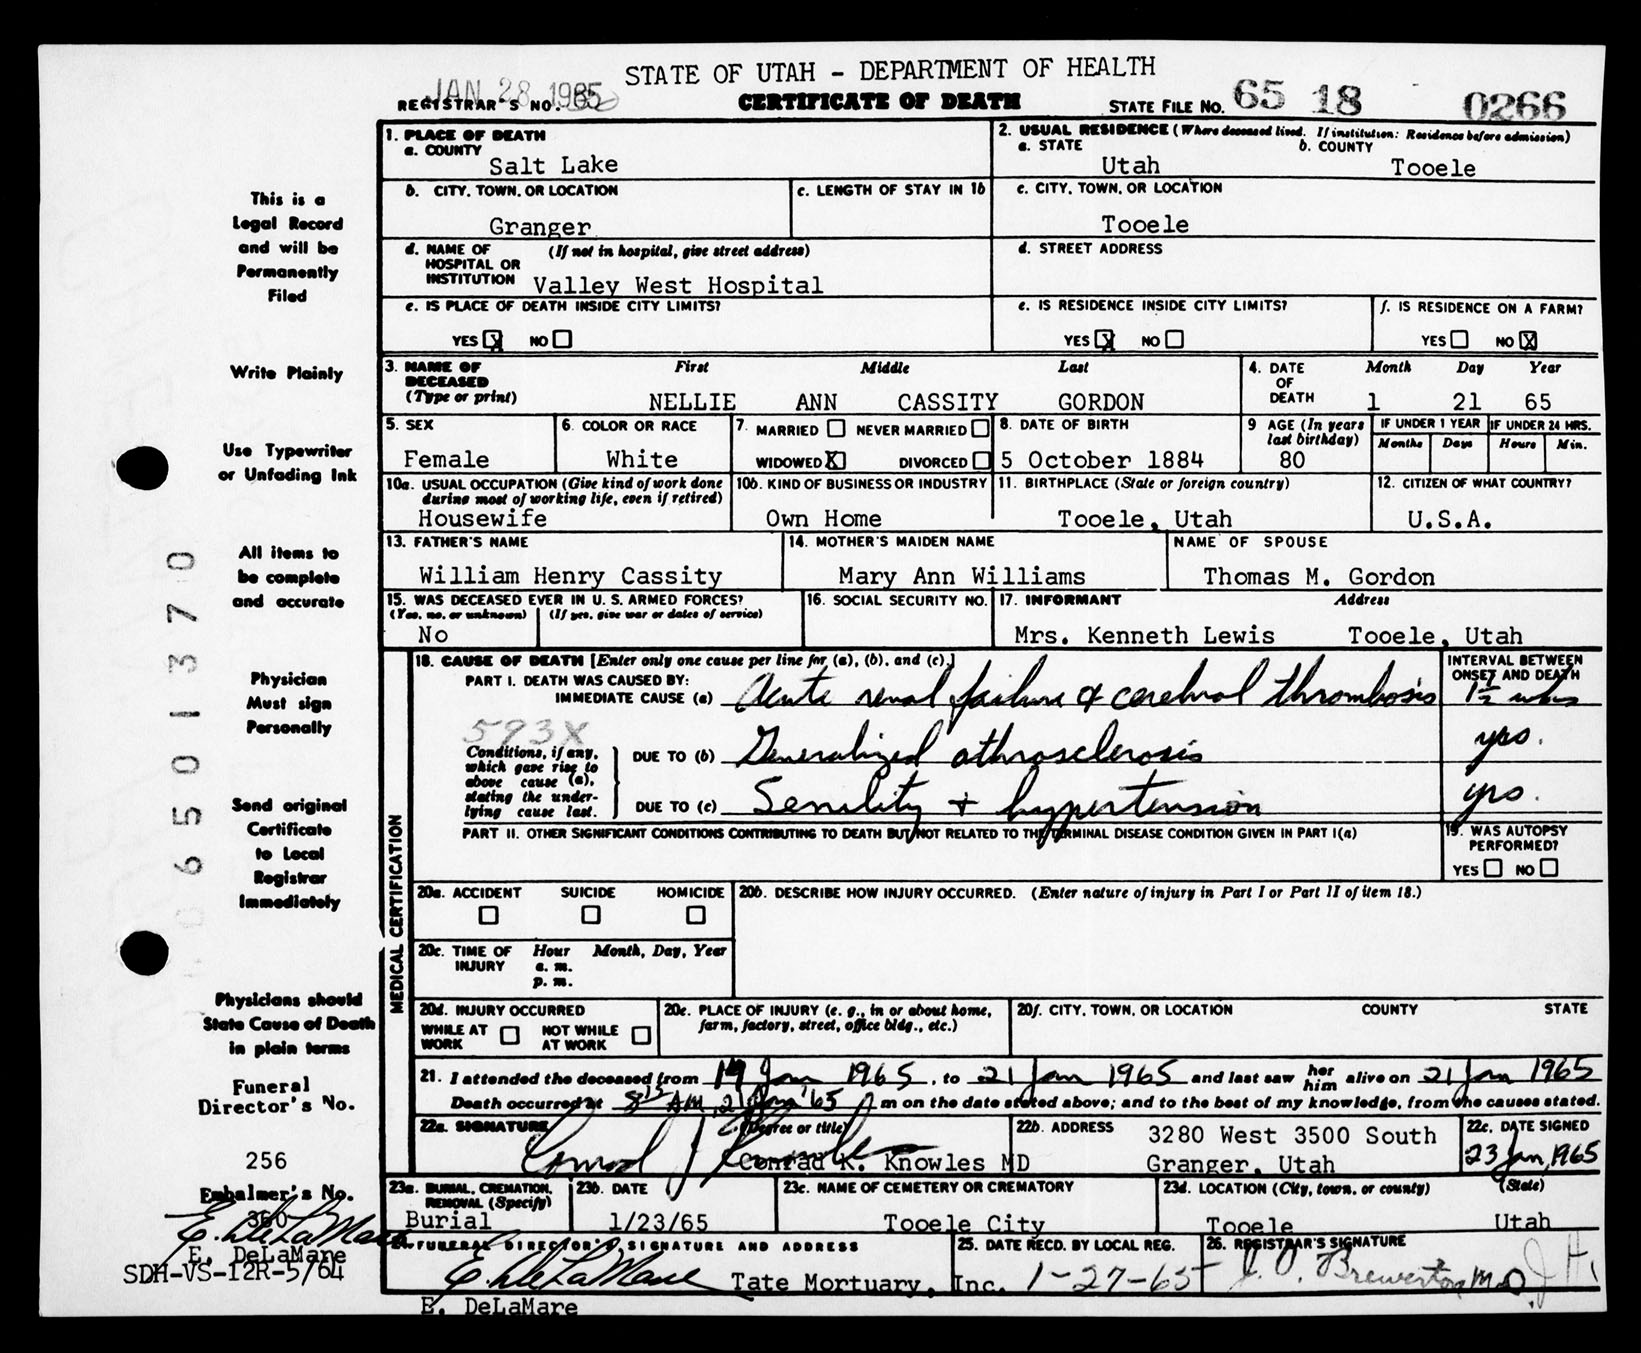 STATE OF UTAH - DEPARTMENT OF HEALTH
JAN 28 1965
REGISTRAR'S NO.
CERTIFICATE OF DEATH
STATE FILE NO. 65 18 0266
1. PLACE OF DEATH
a. COUNTY
Salt Lake
2. USUAL RESIDENCE (Where deceased lived. If institution: Residence before admission)
a. STATE b. COUNTY
Utah Tooele
b. CITY, TOWN, OR LOCATION
Granger
c. LENGTH OF STAY IN 1b
c. CITY, TOWN, OR LOCATION
Tooele
d. NAME OF (If not in hospital, give street address)
HOSPITAL OR
INSTITUTION Valley West Hospital
d. STREET ADDRESS
e. IS PLACE OF DEATH INSIDE CITY LIMITS?
YES X NO
e. IS RESIDENCE INSIDE CITY LIMITS?
YES X NO
f. IS RESIDENCE ON A FARM?
YES NO X
3. NAME OF First Middle Last
DECEASED
(Type or print) NELLIE ANN CASSITY GORDON
4. DATE Month Day Year
OF
DEATH 1 21 65
5. SEX
Female
6. COLOR OR RACE
White
7. MARRIED NEVER MARRIED
WIDOWED X DIVORCED
8. DATE OF BIRTH
5 October 1884
9 AGE (In years
last birthday)
80
IF UNDER 1 YEAR
Months Days
IF UNDER 24 HRS.
Hours Min.
10a. USUAL OCCUPATION (Give kind of work done
during most of working life, even if retired)
Housewife
10b. KIND OF BUSINESS OR INDUSTRY
Own Home
11. BIRTHPLACE (State or foreign country)
Tooele, Utah
12. CITIZEN OF WHAT COUNTRY?
U.S.A.
13. FATHER'S NAME
William Henry Cassity
14. MOTHER'S MAIDEN NAME
Mary Ann Williams
NAME OF SPOUSE
Thomas M. Gordon
15. WAS DECEASED EVER IN U. S. ARMED FORCES?
(Yes, no, or unknown) (If yes, give war or dates of service)
No
16. SOCIAL SECURITY NO.
17. INFORMANT Address
Mrs. Kenneth Lewis Tooele, Utah
MEDICAL CERTIFICATION
18. CAUSE OF DEATH [Enter only one cause per line for (a), (b), and (c).]
PART I. DEATH WAS CAUSED BY:
IMMEDIATE CAUSE (a) Acute renal failure & cerebral thrombosis
INTERVAL BETWEEN
ONSET AND DEATH
1½ wks
593X
Conditions, if any,
which gave rise to
above cause (a),
stating the under-
lying cause last.
DUE TO (b) Generalized athrosclerosis yrs.
DUE TO (c) Senility + hypertension yrs.
PART II. OTHER SIGNIFICANT CONDITIONS CONTRIBUTING TO DEATH BUT NOT RELATED TO THE TERMINAL DISEASE CONDITION GIVEN IN PART I(a)
19. WAS AUTOPSY
PERFORMED?
YES NO
20a. ACCIDENT SUICIDE HOMICIDE
20b. DESCRIBE HOW INJURY OCCURRED. (Enter nature of injury in Part I or Part II of item 18.)
20c. TIME OF Hour Month, Day, Year
INJURY a. m.
p. m.
20d. INJURY OCCURRED
WHILE AT NOT WHILE
WORK AT WORK
20e. PLACE OF INJURY (e. g., in or about home,
farm, factory, street, office bldg., etc.)
20f. CITY, TOWN, OR LOCATION COUNTY STATE
21. I attended the deceased from 19 Jan 1965, to 21 Jan 1965 and last saw her him alive on 21 Jan 1965
Death occurred at 8¹⁵ A.M., 21 Jan '65 m on the date stated above; and to the best of my knowledge, from the causes stated.
22a. SIGNATURE (Degree or title)
Conrad K. Knowles MD
22b. ADDRESS 3280 West 3500 South
Granger, Utah
22c. DATE SIGNED
23 Jan, 1965
23a. BURIAL, CREMATION,
REMOVAL (Specify)
Burial
23b. DATE
1/23/65
23c. NAME OF CEMETERY OR CREMATORY
Tooele City
23d. LOCATION (City, town, or county) (State)
Tooele Utah
24. FUNERAL DIRECTOR'S SIGNATURE AND ADDRESS
E. DeLaMare Tate Mortuary, Inc.
E. DeLaMare
25. DATE RECD. BY LOCAL REG.
1-27-65
26. REGISTRAR'S SIGNATURE
J. O. Brewerton, M.D. JH
This is a
Legal Record
and will be
Permanently
Filed
Write Plainly
Use Typewriter
or Unfading Ink
All items to
be complete
and accurate
Physician
Must sign
Personally
Send original
Certificate
to Local
Registrar
Immediately
Physicians should
State Cause of Death
in plain terms
Funeral
Director's No.
256
Embalmer's No.
360
E. DeLaMare
E. DeLaMare
SDH-VS-12R-5/64
06501370